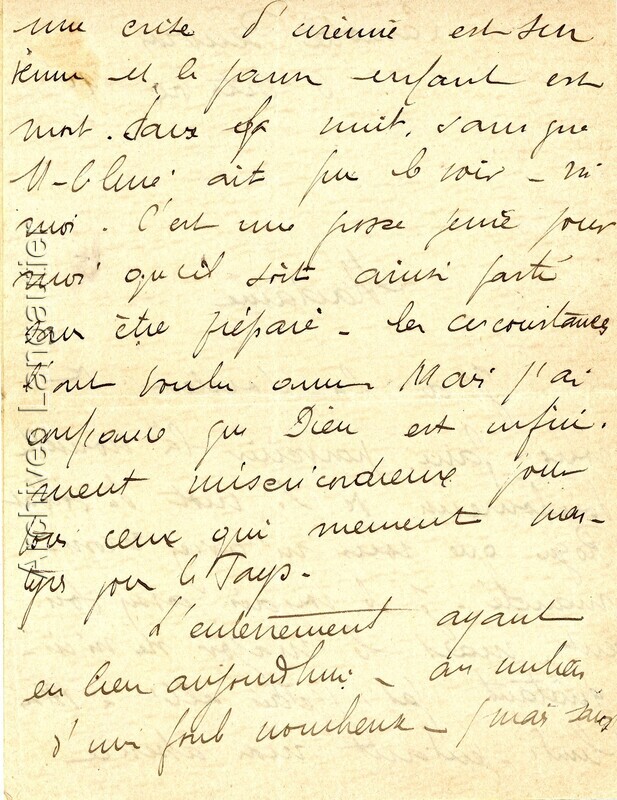 une crise d'urémie est sur
venue et le pauvre enfant est
mort. dans la nuit, sans que
M. le Curé ait pu le voir - ni
moi. C'est une grosse peine pour
moi qu'il soit ainsi parti
sans être préparé - les circonstances
l'ont voulu ainsi. Mais j'ai
confiance que Dieu est infini-
ment miséricordieux pour
tous ceux qui meurent mar-
tyrs pour le Pays.
L'enterrement ayant
eu lieu aujourd'hui - au milieu
d'une foule nombreuse - (mais sans
Archives Lanaudière